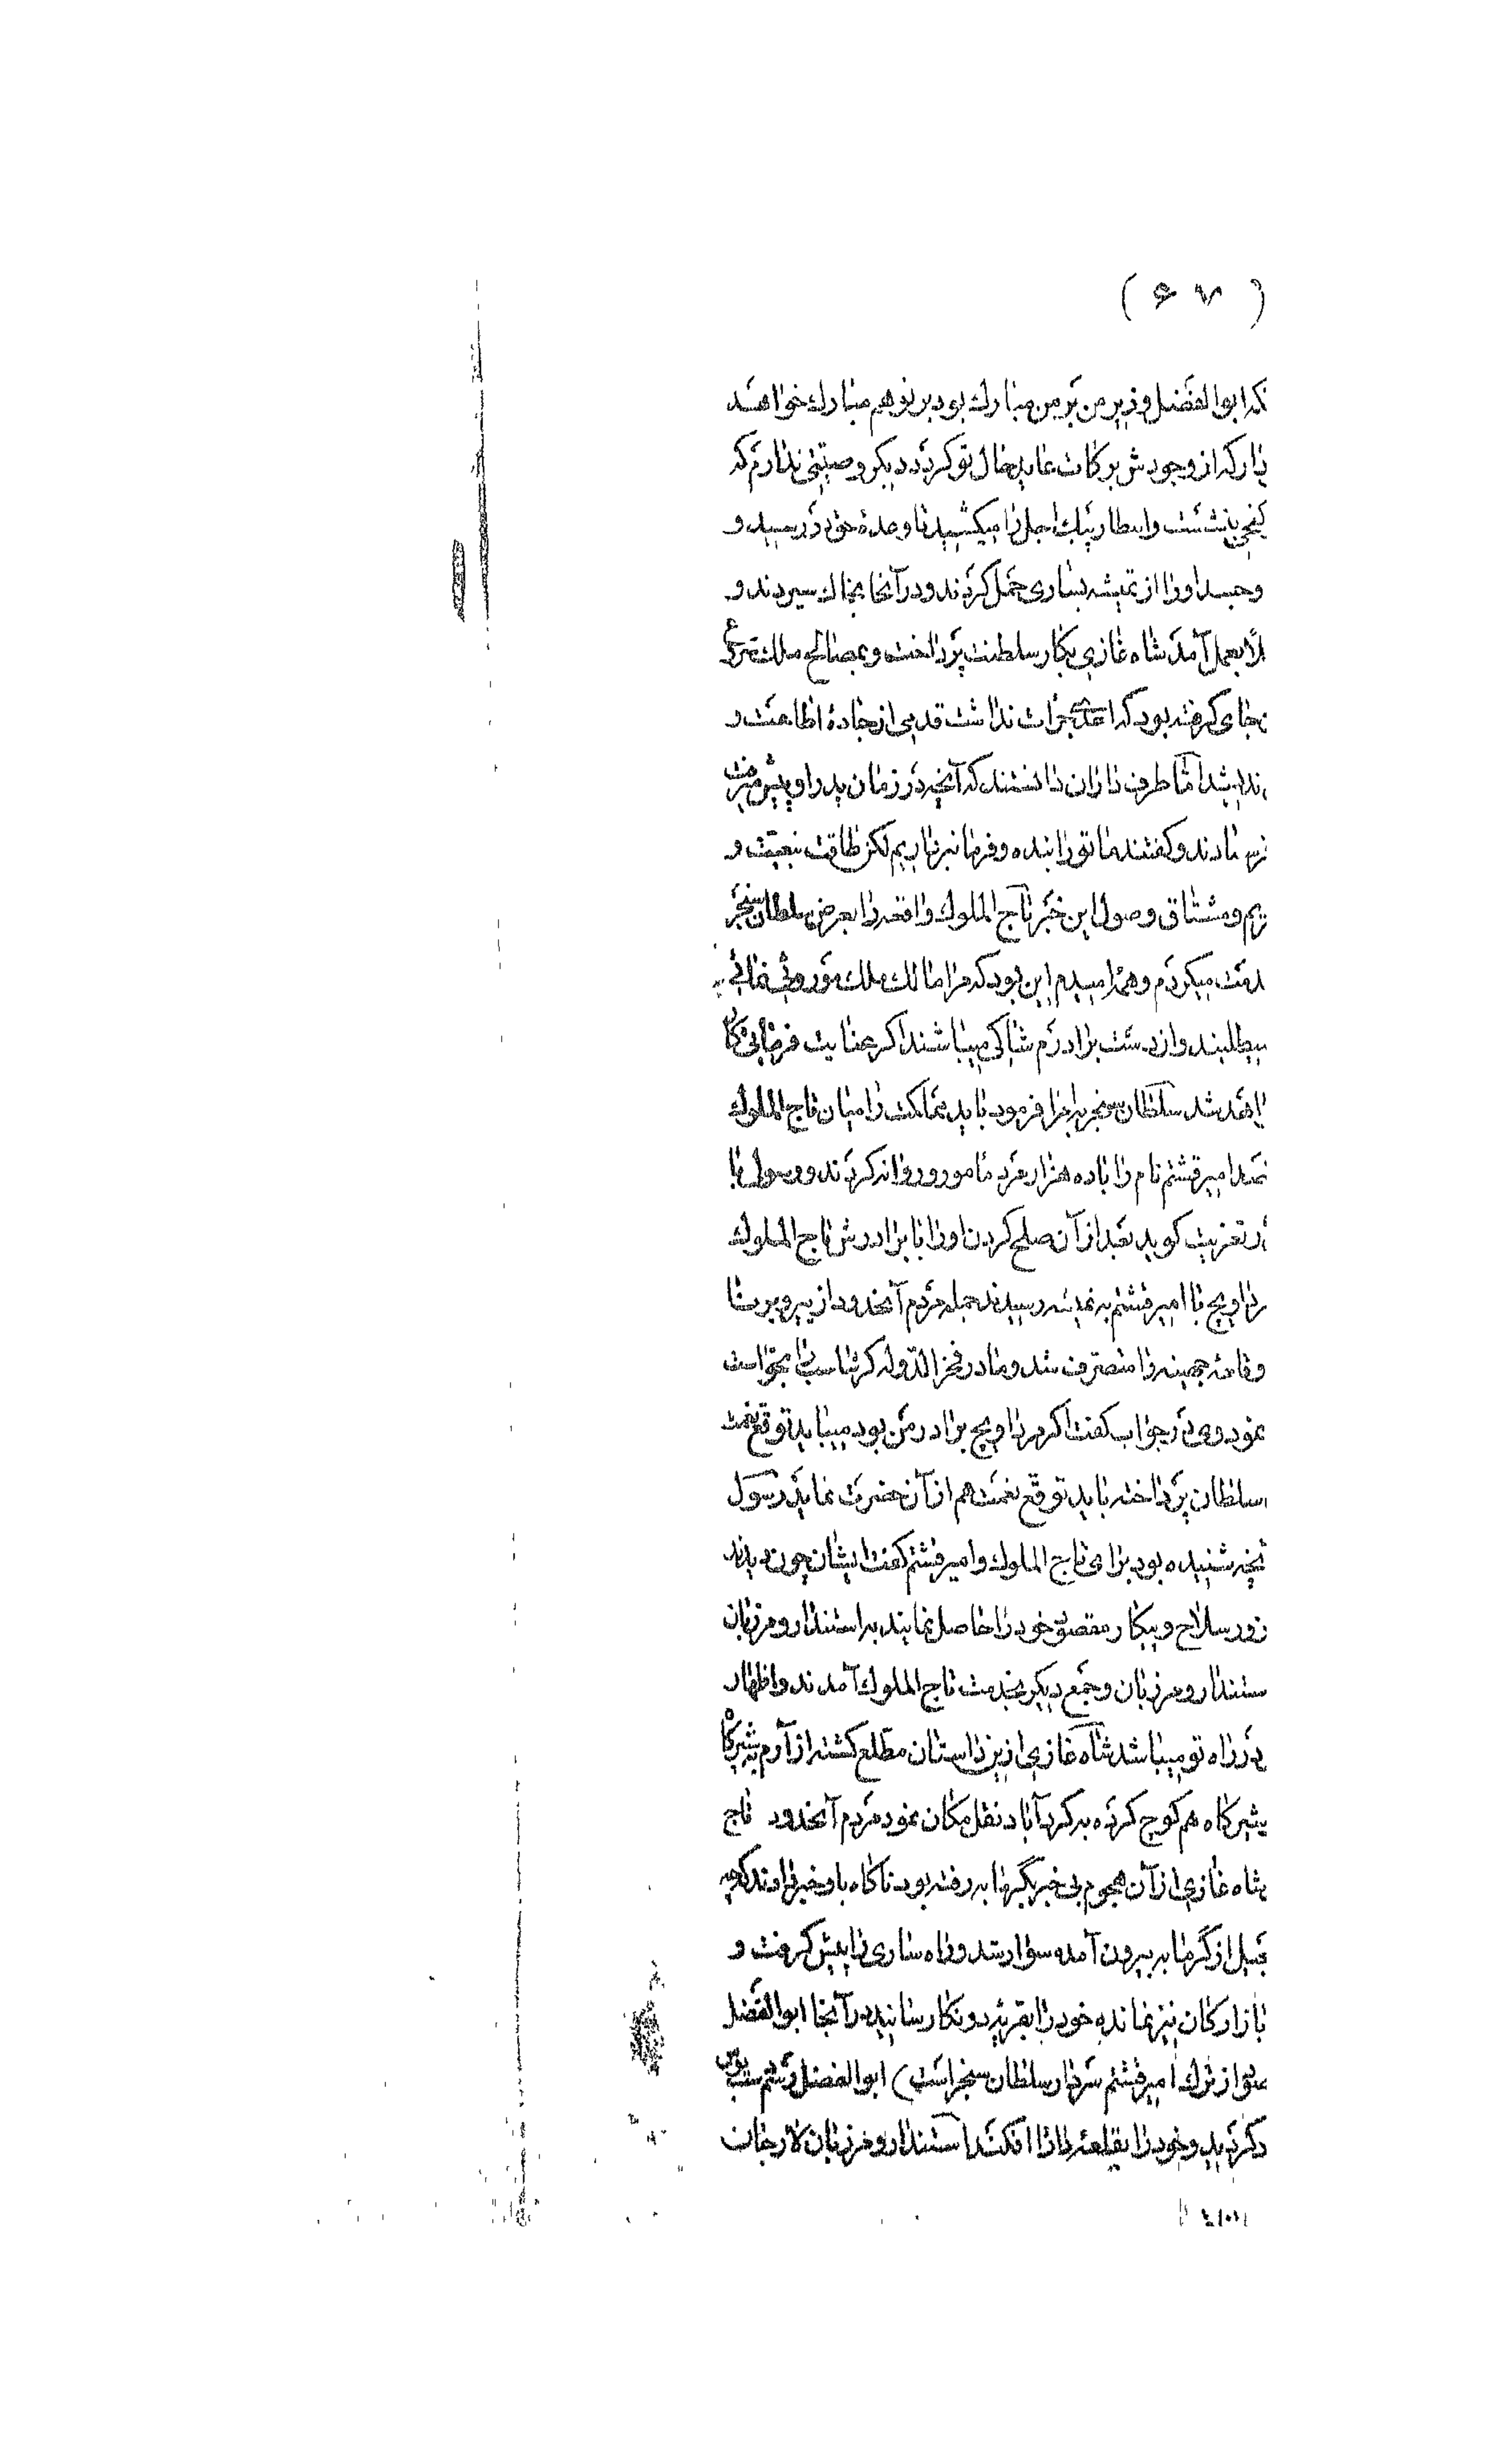 ( ۶۷ )
که ابوالفضل وزیر من بر من مبارك بود بر تو هم مبارك خواهد
دار که از وجودش برکات عاید حال تو گردد دیگر وصیتی ندارم که
کنجی بنشست و انتظار پیك اجل را میکشید تا وعده حق در رسید و
و جسد او را از تمیشه بساری حمل کردند و در آنجا بخاك سپردند و
بعمل آمد شاه غازی بکار سلطنت پرداخت و بمصالح ملك
جای گرفته بود که احدی جرات نداشت قدمی از جاده اطاعت و
اما طرف داران دانستند که آنچه در زمان پدر او پیش
فرستادند و گفتند ما تو را بنده و فرمانبرداریم لکن طاقت تبعیت و
و مشتاق وصول این خبر تاج الملوك واقعه را بعرض سلطان سنجر
میکردم و همه امیدم این بود که مرا مالك ملك موروثی نمائی
میطلبند و از دست برادرم شاکی میباشند اگر عنایت فرمائی
شد سلطان سنجر فرمود باید مملکت را میان تاج الملوك
امیر قشتم نام را با ده هزار مرد مامور و روانه کردند و رسول با
تعزیت گوید بعد از آن صلح کردن او را با برادرش تاج الملوك
مرداویج با امیر قشتم به تمیشه رسیدند جمله مردم آنحدود از پیر و برنا
و قلعه جهینه را متصرف شد و مادر فخر الدوله گرشاسب را بخواست
نمود وی در جواب گفت اگر مرداویج برادر من بود میباید توقع نعمت
سلطان پرداخته باید توقع نعمت هم از آن حضرت نماید رسول
آنچه شنیده بود برای تاج الملوك و امیر قشتم گفت ایشان چون دیدند
زور سلاح و پیکار مقصود خود را حاصل نمایند به استندار و مرزبان
استندار و مرزبان و جمع دیگر بخدمت تاج الملوك آمدند و اظهار
در راه تو میباشد شاه غازی از این داستان مطلع گشته از آرم
بشیرگاه هم کوچ کرده به گردآباد نقل مکان نمود مردم آنحدود تاج
شاه غازی از آن هجوم بی خبر بگرمابه رفته بود ناگاه باو خبر دادند که
تعجیل از گرمابه بیرون آمده سوار شد و راه ساری را پیش گرفت و
بازارگان نیز نمانده خود را بقریه دونکا رسانید در آنجا ابوالفضل
از ترك امیر قشتم سردار سلطان سنجر است) ابوالفضل رستم
گردید و خود را بقلعه دارا افکند استندار و مرزبان لارجان